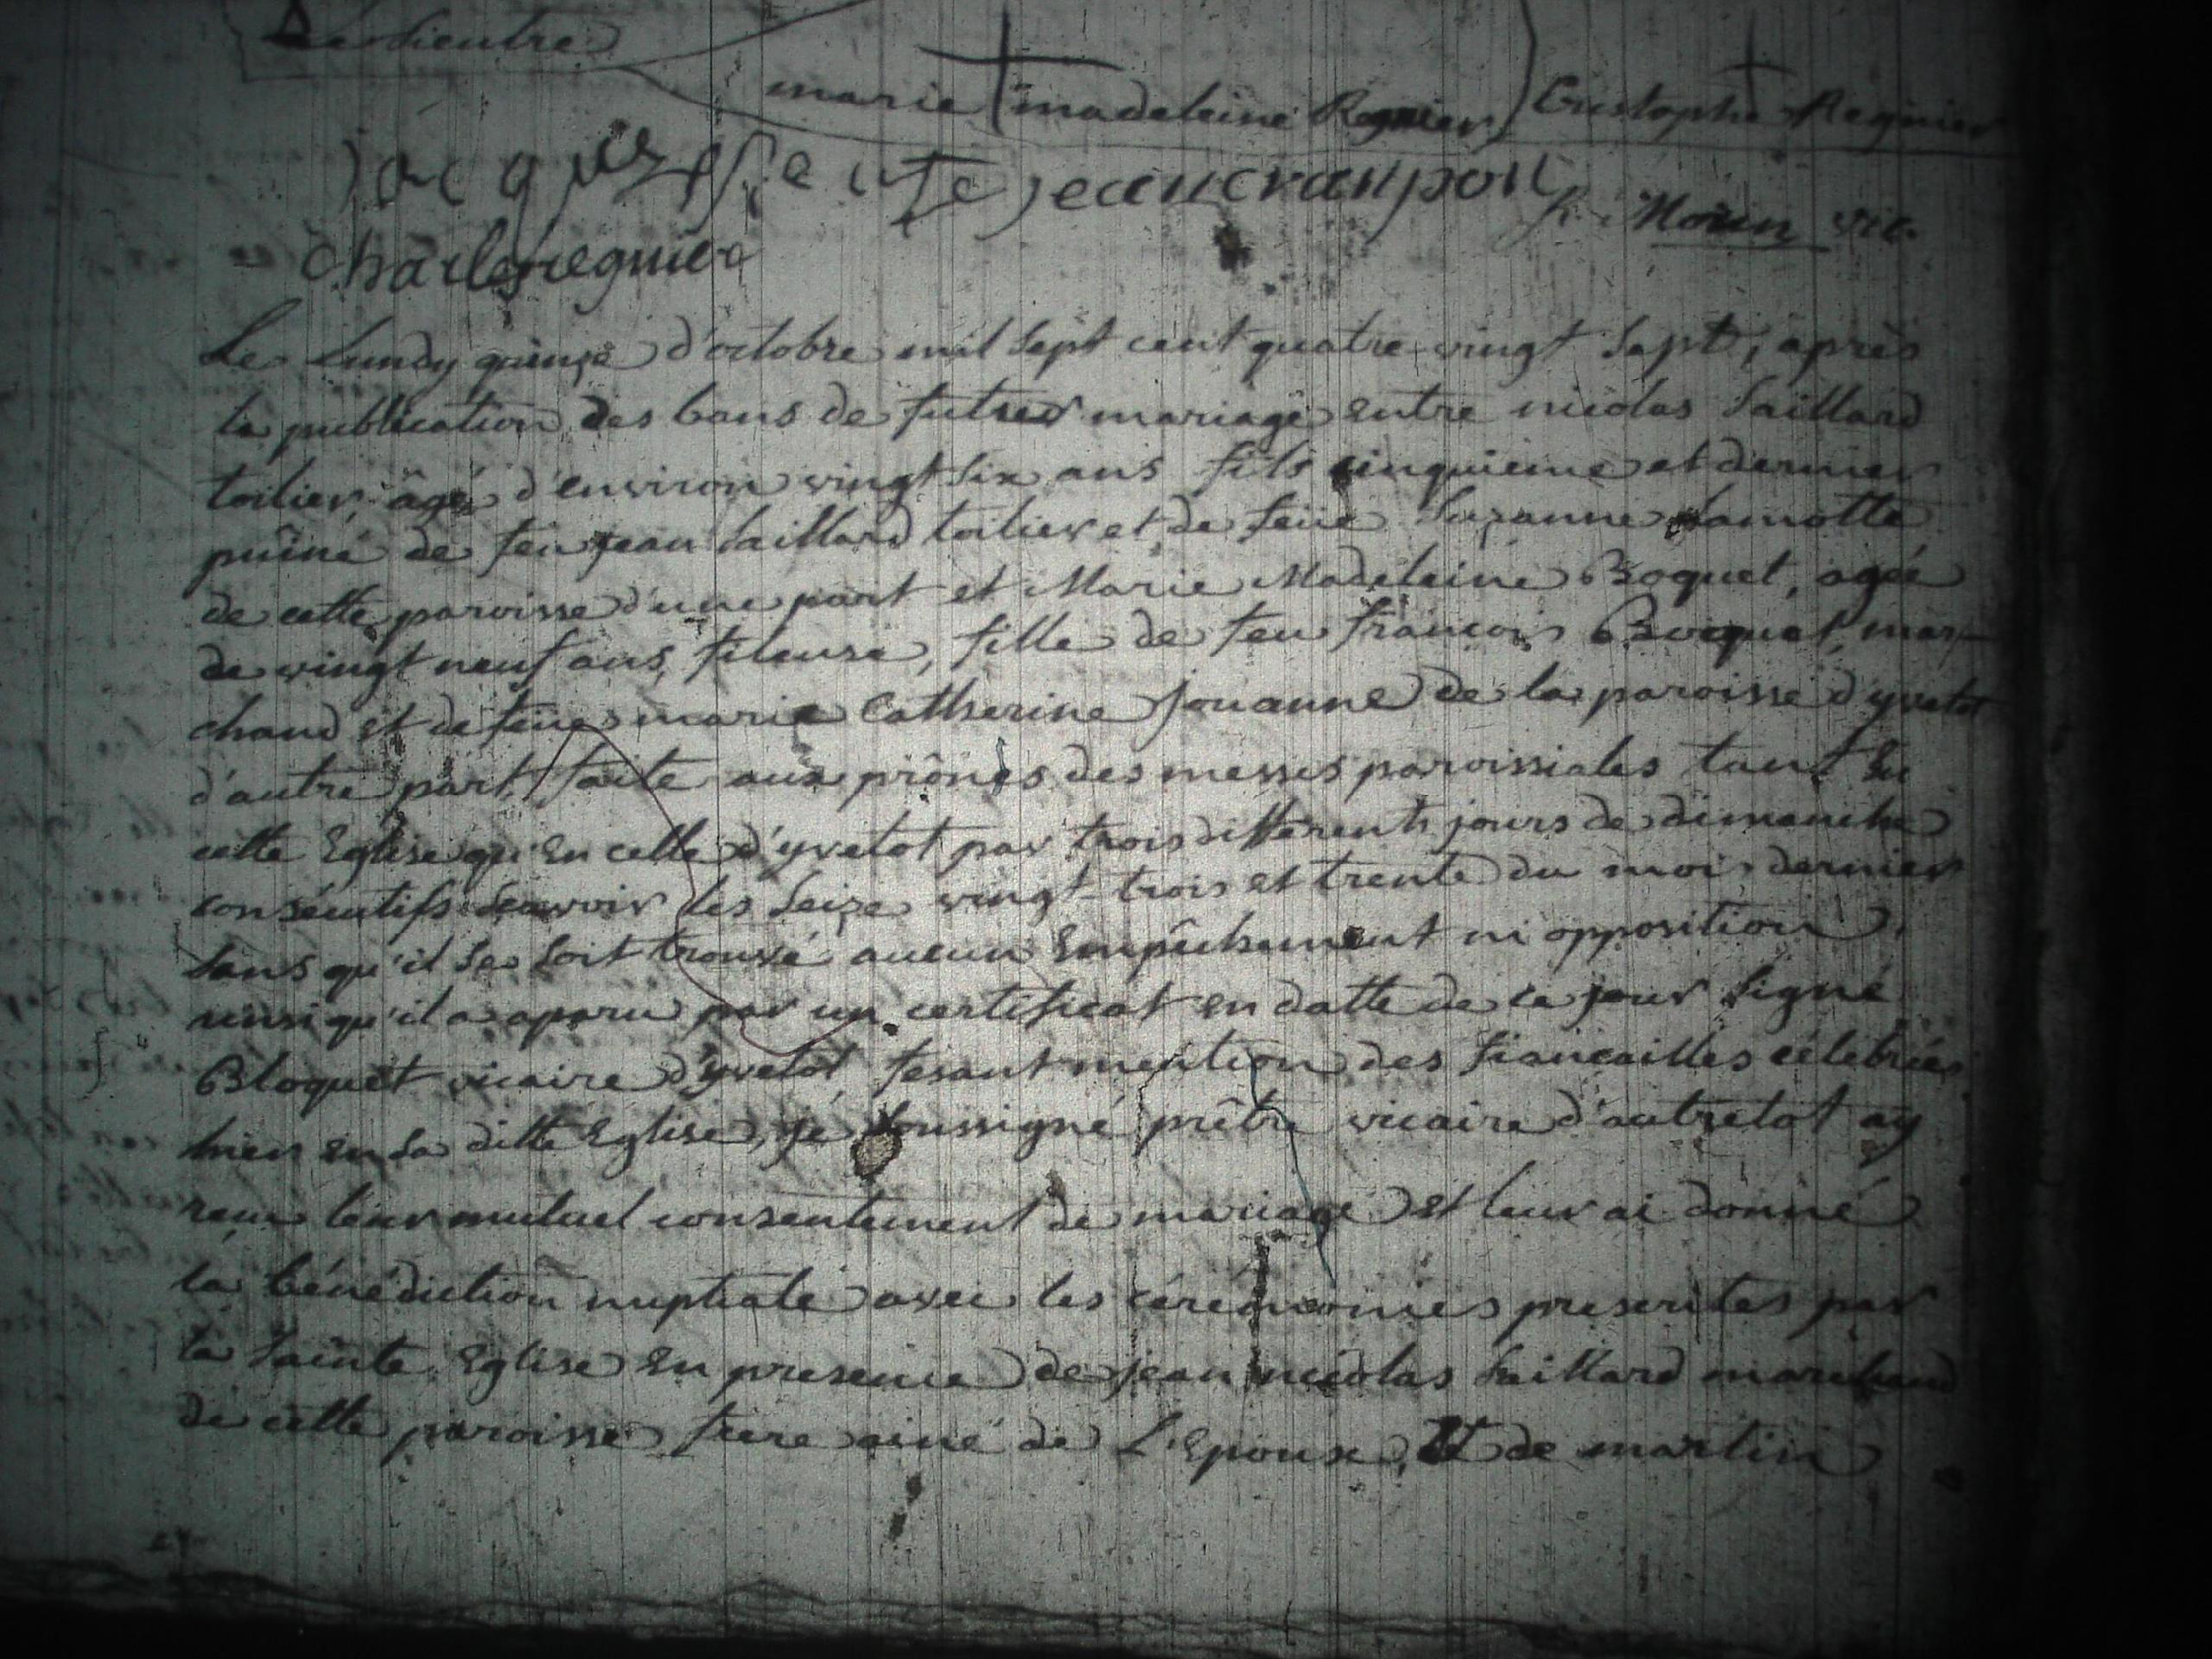 marie madeleine Regnier Cristophe Regnier
jacques jean cranpon
Morin vic.
charles regnier
Le Lundy quinze d'octobre mil sept cent quatre vingt sept, après
la publication des bans de futur mariage entre nicolas Saillard
toilier, âgé d'environ vingt six ans fils cinquieme et dernier
puîné de feu jean Saillard toilier et de feüe Suzanne Lamotte
de cette paroisse d'une part et Marie Madeleine Boquet, agée
de vingt neuf ans, fileuse, fille de feu françois Bocquet, mar-
chand et de feüe marie Catherine Jouanne de la paroisse d'yvetot
d'autre part, faite aux prônes des messes paroissiales tant En
cette Eglise qu'En celle d'yvetot par trois différents jours de dimanche
consécutifs sçavoir les Seize vingt-trois et trente du mois dernier
sans qu'il se soit trouvé aucun Empêchement ni opposition,
ainsi qu'il a aparu par un certificat en datte de ce jour signé
Bloquet vicaire d'yvetot fesant mention des fiancailles célébrées
hier en sa ditte Eglise, je soussigné prêtre vicaire d'autretot ay
reçu leur mutuel consentement de mariage et leur ai donné
la bénédiction nuptiale avec les cérémonies prescrites par
la Sainte Eglise En presence de jean nicolas Saillard marchand
de cette paroisse frere ainé de L'Epoux, Et de martin